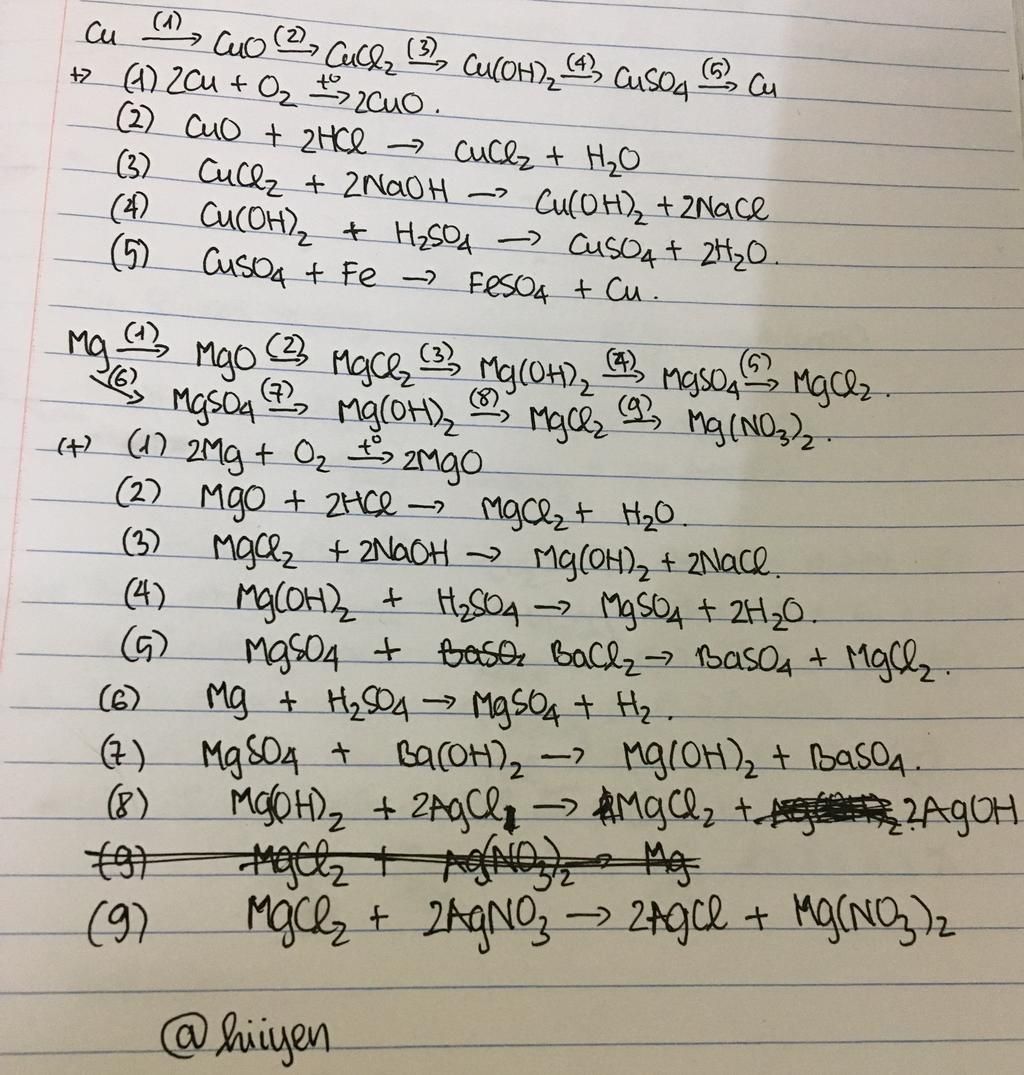 Cu (1)→ CuO (2)→ CuCl₂ (3)→ Cu(OH)₂ (4)→ CuSO₄ (5)→ Cu
+> (1) 2Cu + O₂ t°→ 2CuO.
(2) CuO + 2HCl → CuCl₂ + H₂O
(3) CuCl₂ + 2NaOH → Cu(OH)₂ + 2NaCl
(4) Cu(OH)₂ + H₂SO₄ → CuSO₄ + 2H₂O.
(5) CuSO₄ + Fe → FeSO₄ + Cu.
Mg (1)→ MgO (2)→ MgCl₂ (3)→ Mg(OH)₂ (4)→ MgSO₄ (5)→ MgCl₂.
(6)↘ MgSO₄ (7)→ Mg(OH)₂ (8)→ MgCl₂ (9)→ Mg(NO₃)₂.
(+) (1) 2Mg + O₂ t°→ 2MgO
(2) MgO + 2HCl → MgCl₂ + H₂O.
(3) MgCl₂ + 2NaOH → Mg(OH)₂ + 2NaCl.
(4) Mg(OH)₂ + H₂SO₄ → MgSO₄ + 2H₂O.
(5) MgSO₄ + BaCl₂ → BaSO₄ + MgCl₂.
(6) Mg + H₂SO₄ → MgSO₄ + H₂.
(7) MgSO₄ + Ba(OH)₂ → Mg(OH)₂ + BaSO₄.
(8) Mg(OH)₂ + 2AgCl → MgCl₂ + 2AgOH
(9) MgCl₂ + Ag(NO₃)₂ → Mg
(9) MgCl₂ + 2AgNO₃ → 2AgCl + Mg(NO₃)₂
@hiiyen